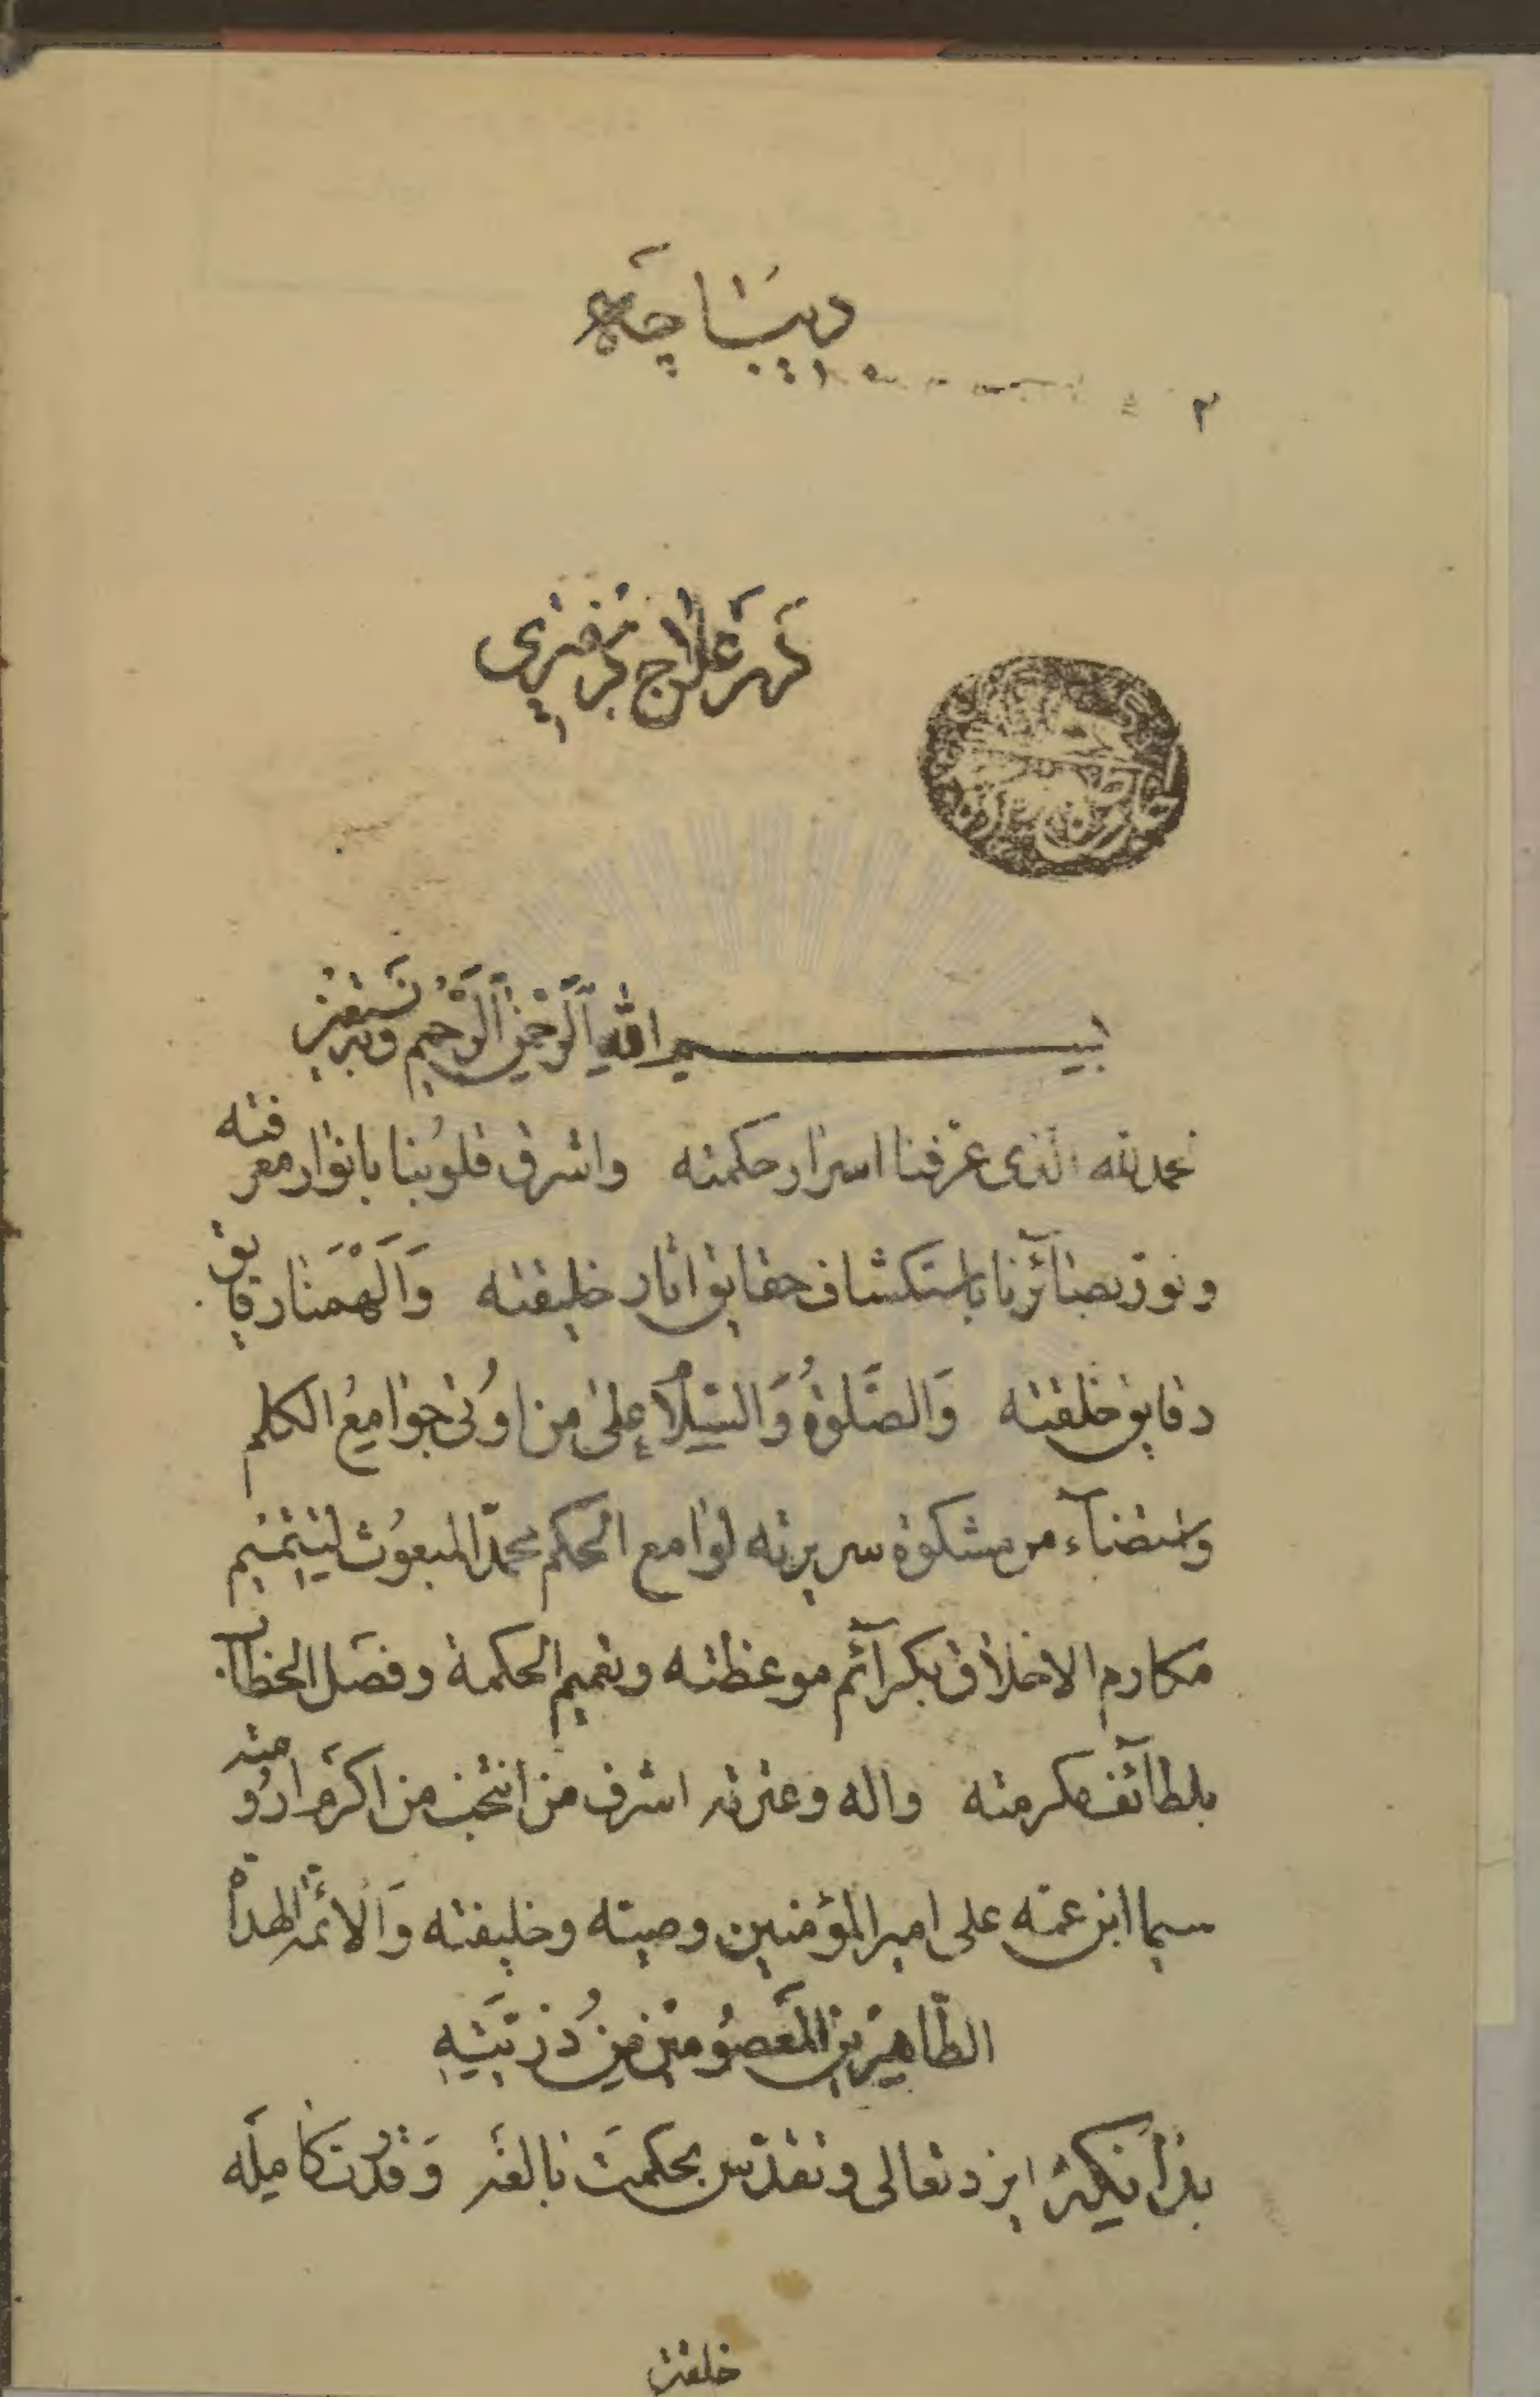 ديباچه
۲
بسم الله الرحمن الرحيم وبه نستعين
نحمد لله الذى عرفنا اسرار حكمته واشرق قلوبنا بانوار معرفته
ونور بصائرنا باستكشاف حقايق اثار خليقته وَاَلْهَمَنا رقايق
دقايق خلقته وَالصَّلوةُ وَالسّلام على من اوُتى جوامعُ الكلم
واستضآء من مشكوة سريرته لوامع الحكم محمّد المبعُوث لتتميم
مكارم الاخلاق بكرآئم موعظته وتعميم الحكمة وفصل الخطاب
بلطآئف مكرمته واله وعترته اشرف من انتخب من اكرم ارُومته
سيما ابن عمّه على امير المؤمنين وصيّته وخليفته وَالائمّة الهداة
الطّاهرين المعصُومين من ذُرّيَّتِهِ
بدانكه ايزد تعالى وتقدّس بحكمت بالغه وَقدُرت كامله
خلقت